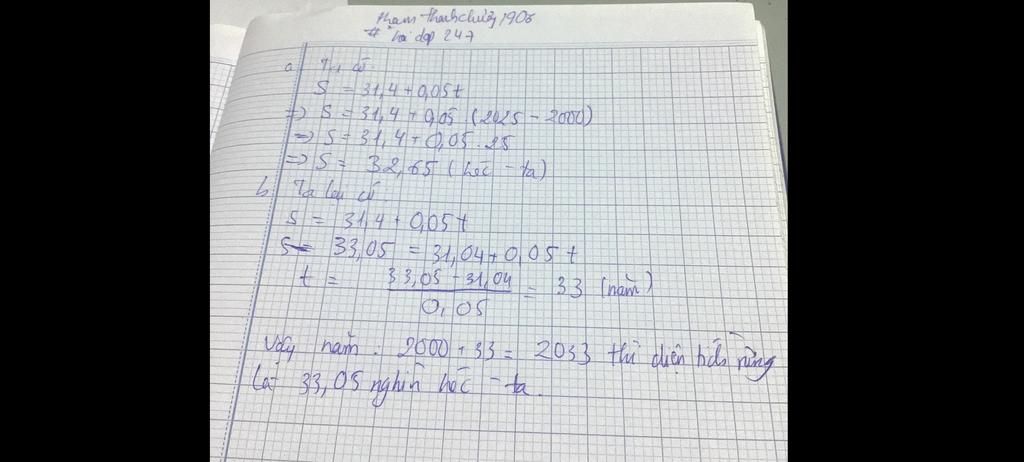 Pham Thanh chương 1906
# hoi dap 247
a Ta có
S = 31,4 + 0,05t
=> S = 31,4 + 0,05 . (2025 - 2000)
=> S = 31,4 + 0,05 . 25
=> S = 32,65 (héc - ta)
b, Ta lại có
S = 31,4 + 0,05t
33,05 = 31,04 + 0,05 t
t = 33,05 - 31,04 / 0,05 = 33 (năm)
Vậy năm : 2000 + 33 = 2033 thì diện tích rừng
là 33,05 nghìn héc - ta.